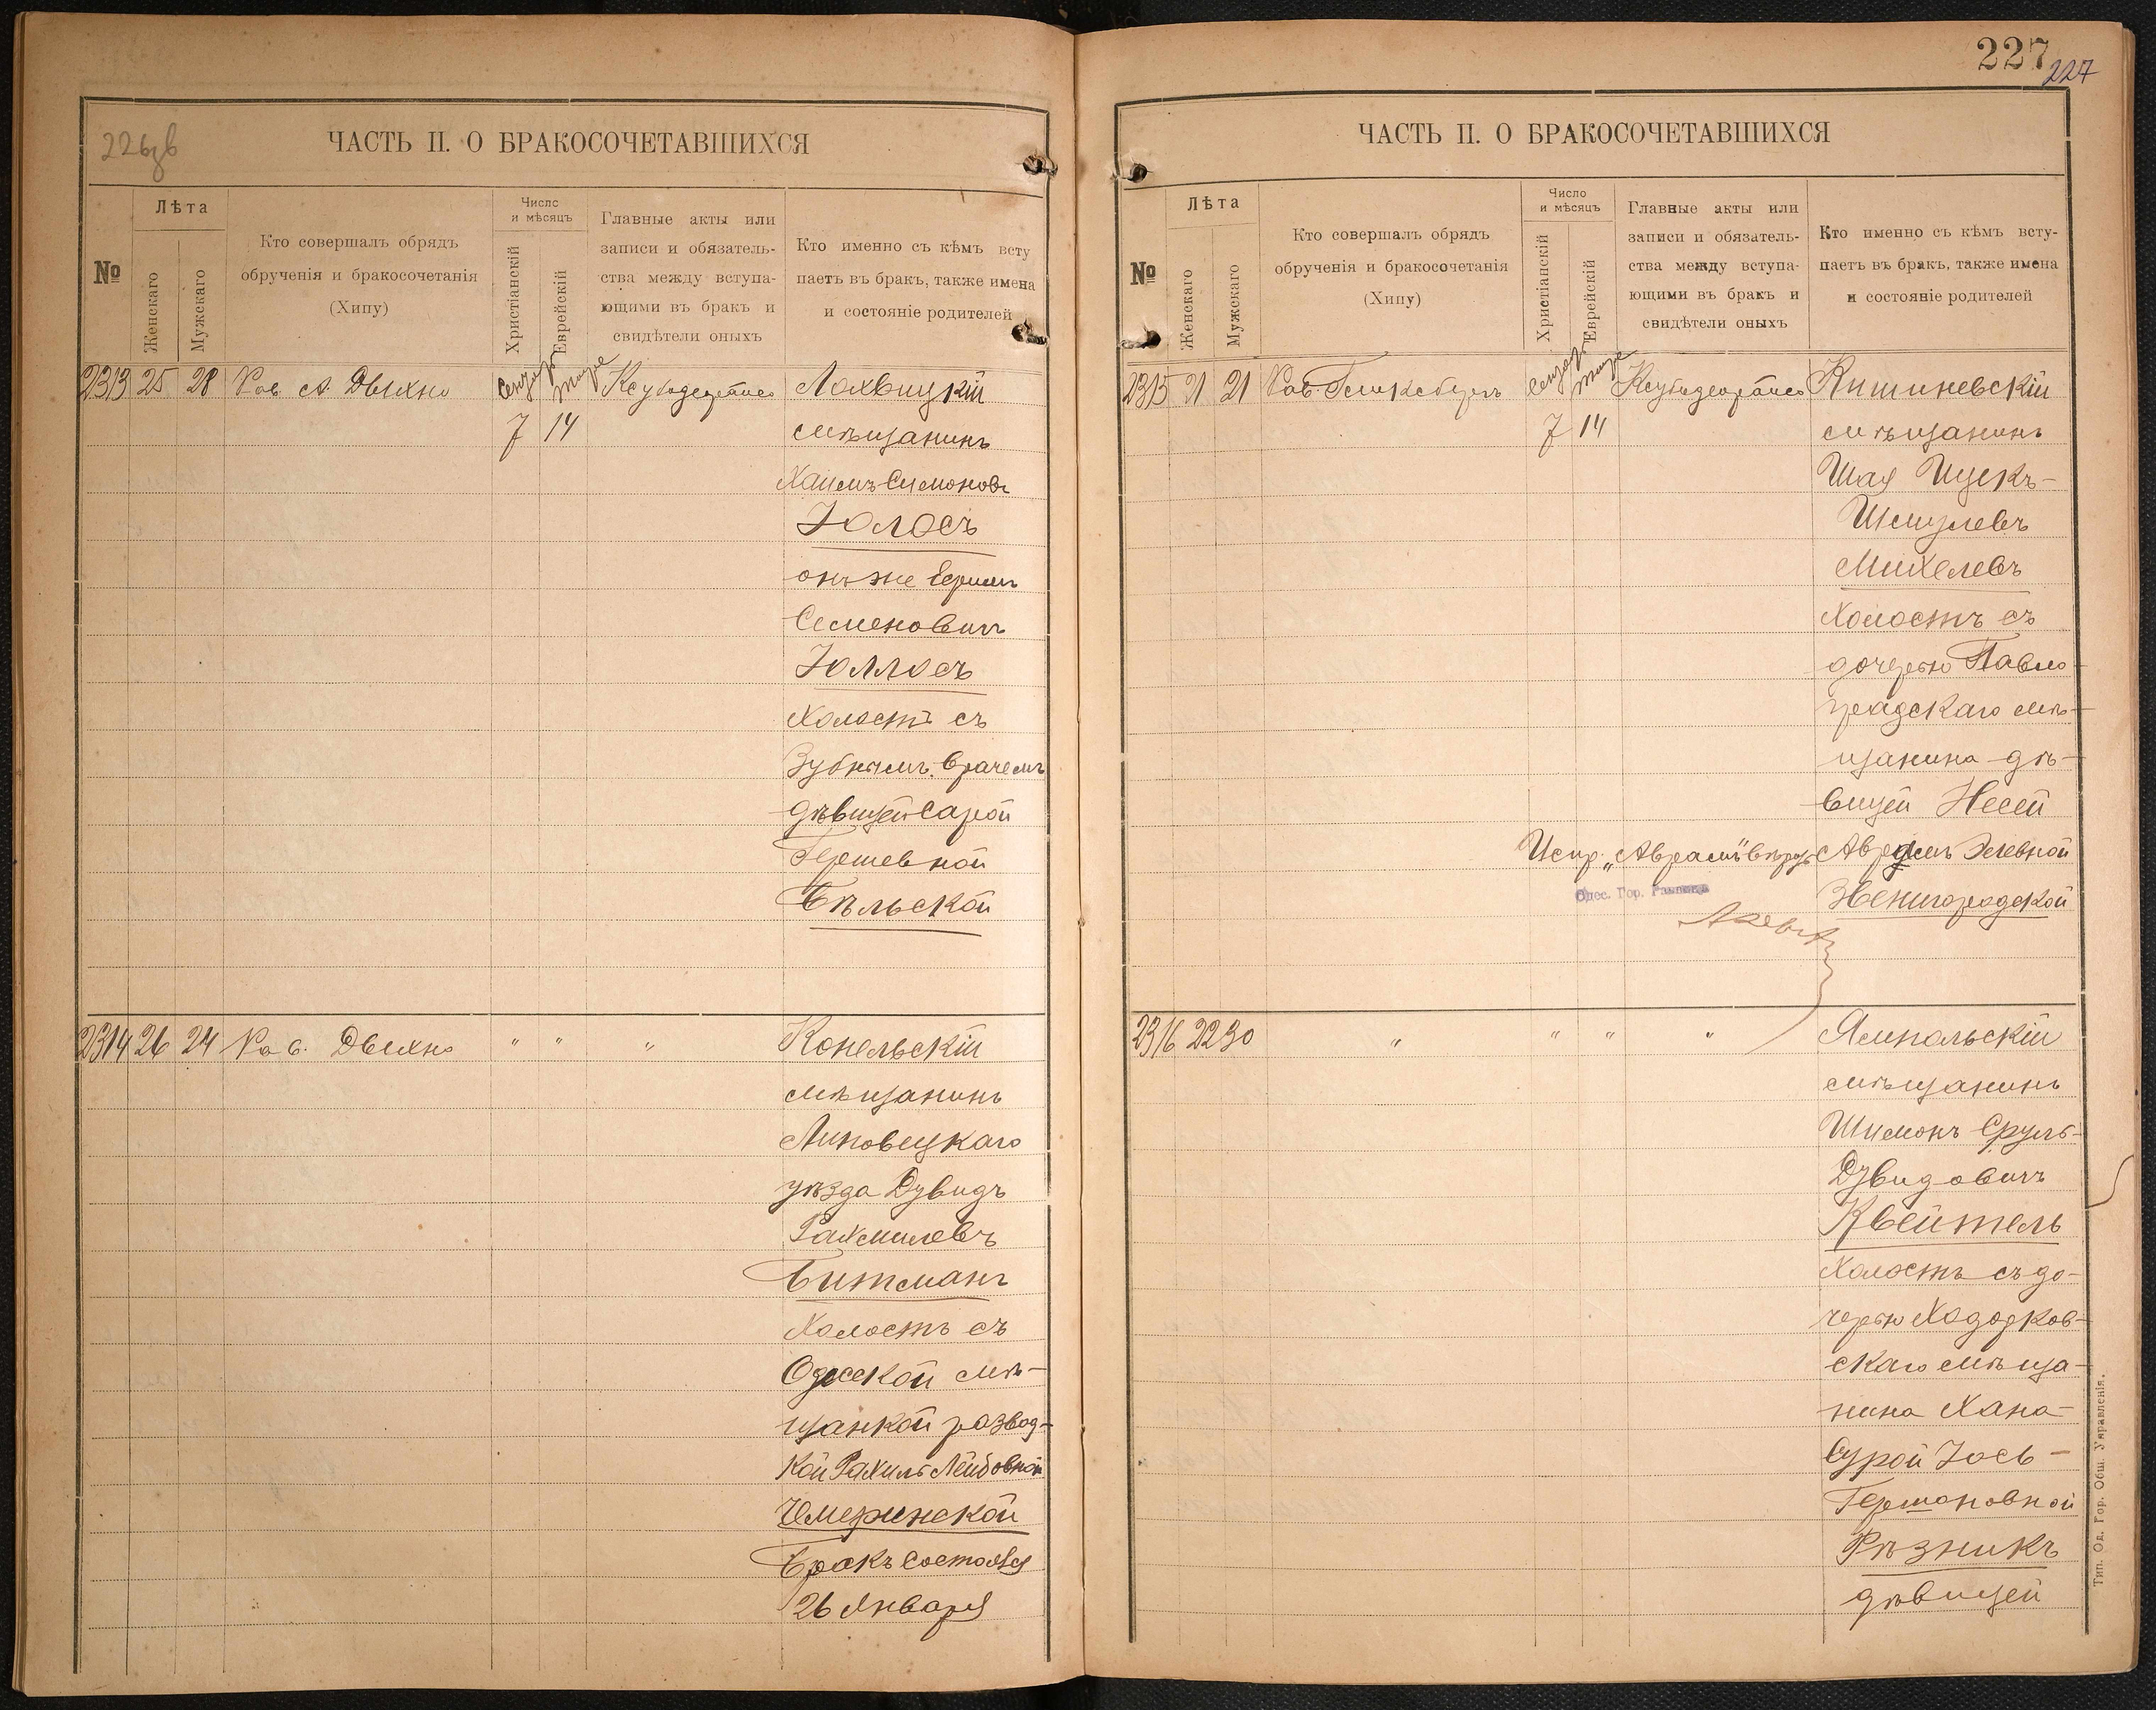 226 об
ЧАСТЬ II. О БРАКОСОЧЕТАВШИХСЯ
№
Лѣта
Женскаго
Мужскаго
Кто совершалъ обрядъ
обрученія и бракосочетанія
(Хипу)
Число
и мѣсяцъ
Христіанскій
Еврейскій
Главные акты или
записи и обязатель-
ства между вступа-
ющими въ бракъ и
свидѣтели оныхъ
Кто именно съ кѣмъ всту
паетъ въ бракъ, также имена
и состояніе родителей
2313 25 28 Рав. А. Двихно
7 14
Лохвицкій
мѣщанинъ
Хаимъ Симоновъ
Іолосъ
онъ же Ефимъ
Семеновичъ
Іоллосъ
Холостъ съ
Зубнымъ врачемъ
дѣвицей Сарой
Гершевной
Бѣльской
2314 26 24 Рав. Двихно " " "
Конельскій
мѣщанинъ
Липовецкаго
уѣзда Дувидъ
Рахмилевъ
Битманъ
Холостъ съ
Одесской мѣ-
щанкой развод-
кой Рахиль Лейбовной
Чмеринской
Бракъ состоялся
26 Января
227
227
ЧАСТЬ II. О БРАКОСОЧЕТАВШИХСЯ
№
Лѣта
Женскаго
Мужскаго
Кто совершалъ обрядъ
обрученія и бракосочетанія
(Хипу)
Число
и мѣсяцъ
Христіанскій
Еврейскій
Главные акты или
записи и обязатель-
ства между вступа-
ющими въ бракъ и
свидѣтели оныхъ
Кто именно съ кѣмъ всту-
паетъ въ бракъ, также имена
и состояніе родителей
2315 21 21 Рав.
7 14
Кишиневскій
мѣщанинъ
Шая Ицекъ-
Шмулевъ
Михелевъ
Холостъ съ
дочерью Павло-
градскаго мѣ-
щанина дѣ-
вицей Несей
Испр. „Аврамъ" вѣрно
Аврумъ Хаевной
Одес. Гор. Раввинъ
Звенигородской
2316 22 30 " " " "
Ямпольскій
мѣщанинъ
Шимонъ Сруль-
Дувидовичъ
Квейтель
Холостъ съ до-
черью Ходорков-
скаго мѣща-
нина Хана-
Сурой Іось-
Гершоновной
Рѣзникъ
дѣвицей
Тип. Од. Гор. Общ. Управленія.